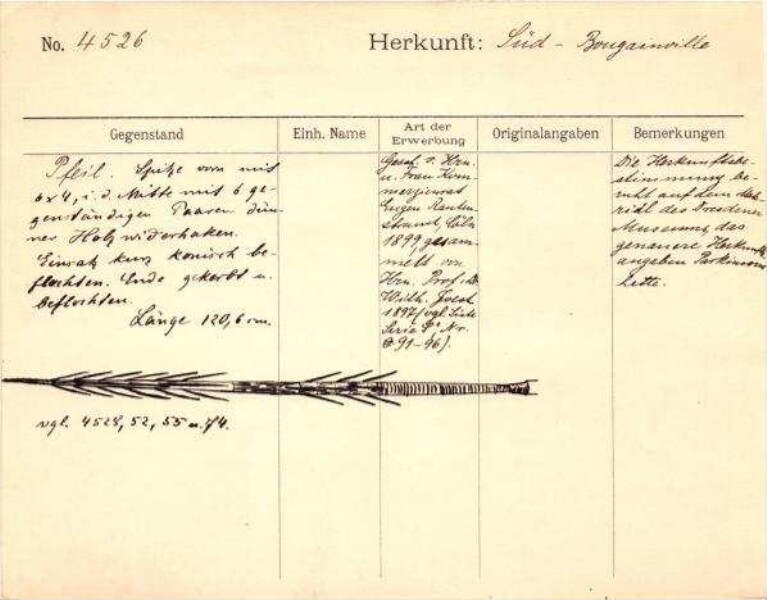 No. 4526
Herkunft: Süd - Bougainville
Gegenstand
Einh. Name
Art der Erwerbung
Originalangaben
Bemerkungen
Pfeil. Spitze vorn mit
6x4, i. d. Mitte mit 6 ge-
genständigen Paaren dün-
ner Holzwiderhaken.
Einsatz kurz konisch be-
flochten. Ende gekerbt u.
beflochten.
Länge 120,6 cm.
Gesch. v. Hrn.
u. Frau Kom-
merzienrat
Eugen Rauten-
strauch, Cöln
1899, gesam-
melt von
Hrn. Prof. Dr.
Wilh. Joest
1897 (vgl. Liste
Serie P, Nr.
91-96).
Die Herkunftsbe-
stimmung be-
ruht auf dem
des Dresdener
Museums, das
genauere Herkunfts
angaben Parkinsons
hatte.
vgl. 4528, 52, 55 u. 74.